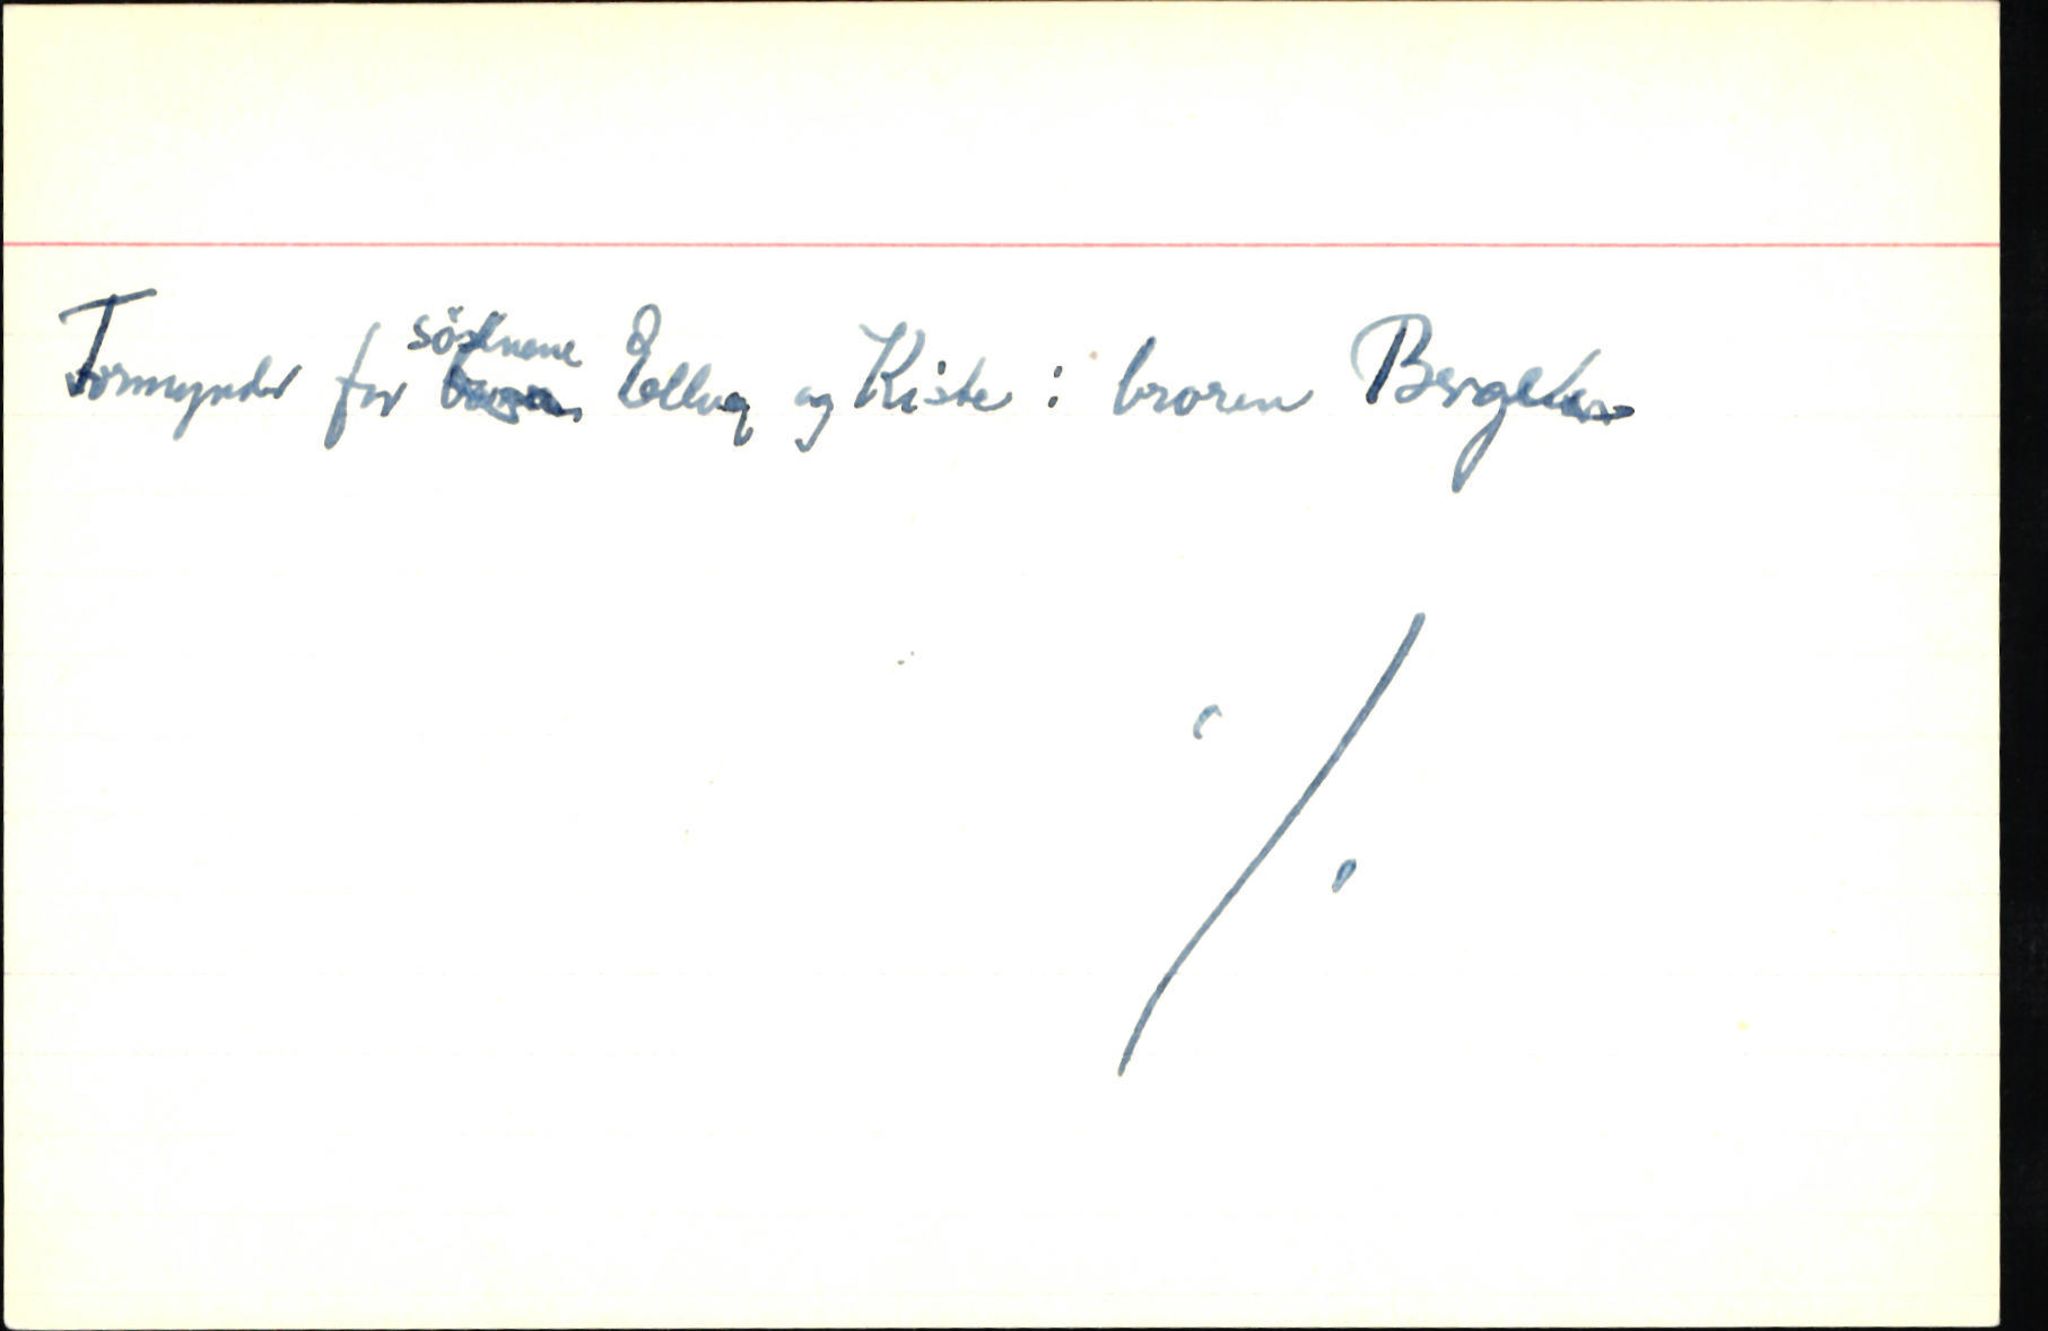 Formynder for söstrene Ellug og Kiste : broren Bergetor